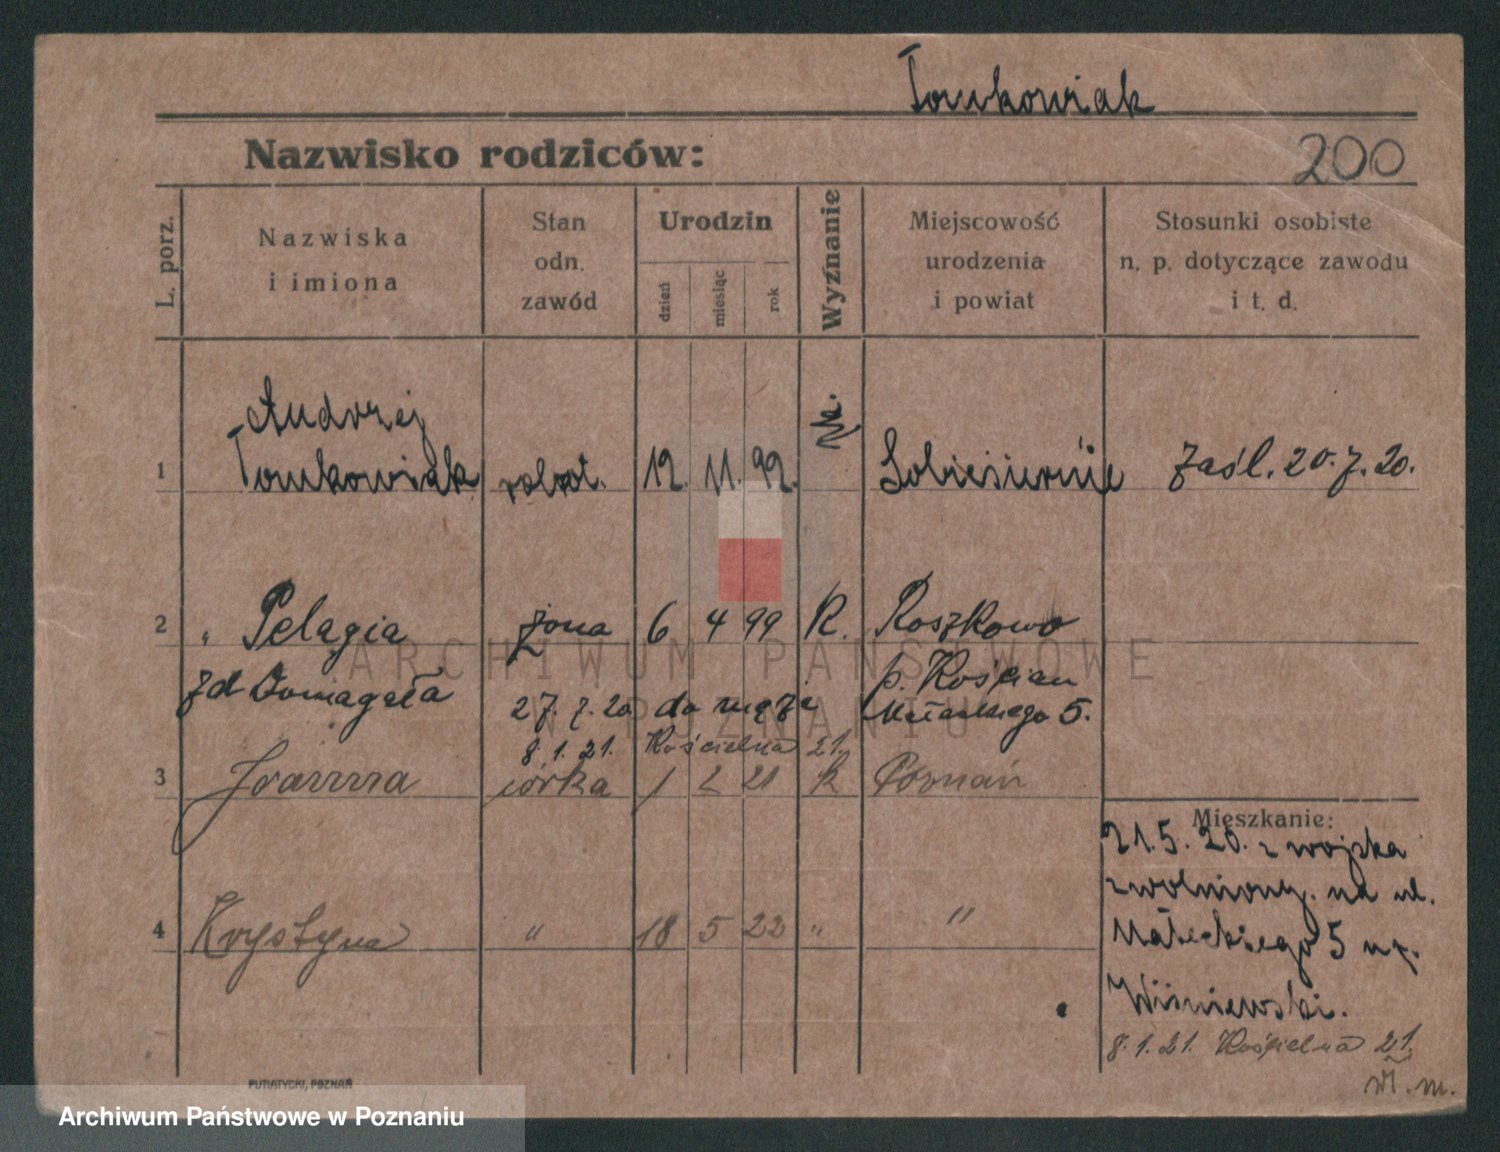 Tomkowiak
Nazwisko rodziców:
200
L. porz.
Nazwiska
i imiona
Stan
odn.
zawód
Urodzin
dzień
miesiąc
rok
Wyznanie
Miejscowość
urodzenia
i powiat
Stosunki osobiste
n. p. dotyczące zawodu
i t. d.
1
Andrzej
Tomkowiak
robot.
12. 11. 99.
Sobiesiernie
zaśl. 20.7.20.
2
" Pelagia
żona
6 4 99
R.
Roszkowo
zd Domagała
p. Kościan
27.7.20 do męża
Małeckiego 5.
8.1.21. Kościelna 21.
3
Joanna
córka
1 2 21
R
Poznań
Mieszkanie:
21.5.20. z wojska
zwolniony. na ul.
Małeckiego 5 u p.
Wiśniewski.
8.1.21. Kościelna 21.
4
Krystyna
"
18 5 22
"
"
PUTIATYCKI, POZNAŃ
ARCHIWUM PAŃSTWOWE
W POZNANIU
Archiwum Państwowe w Poznaniu